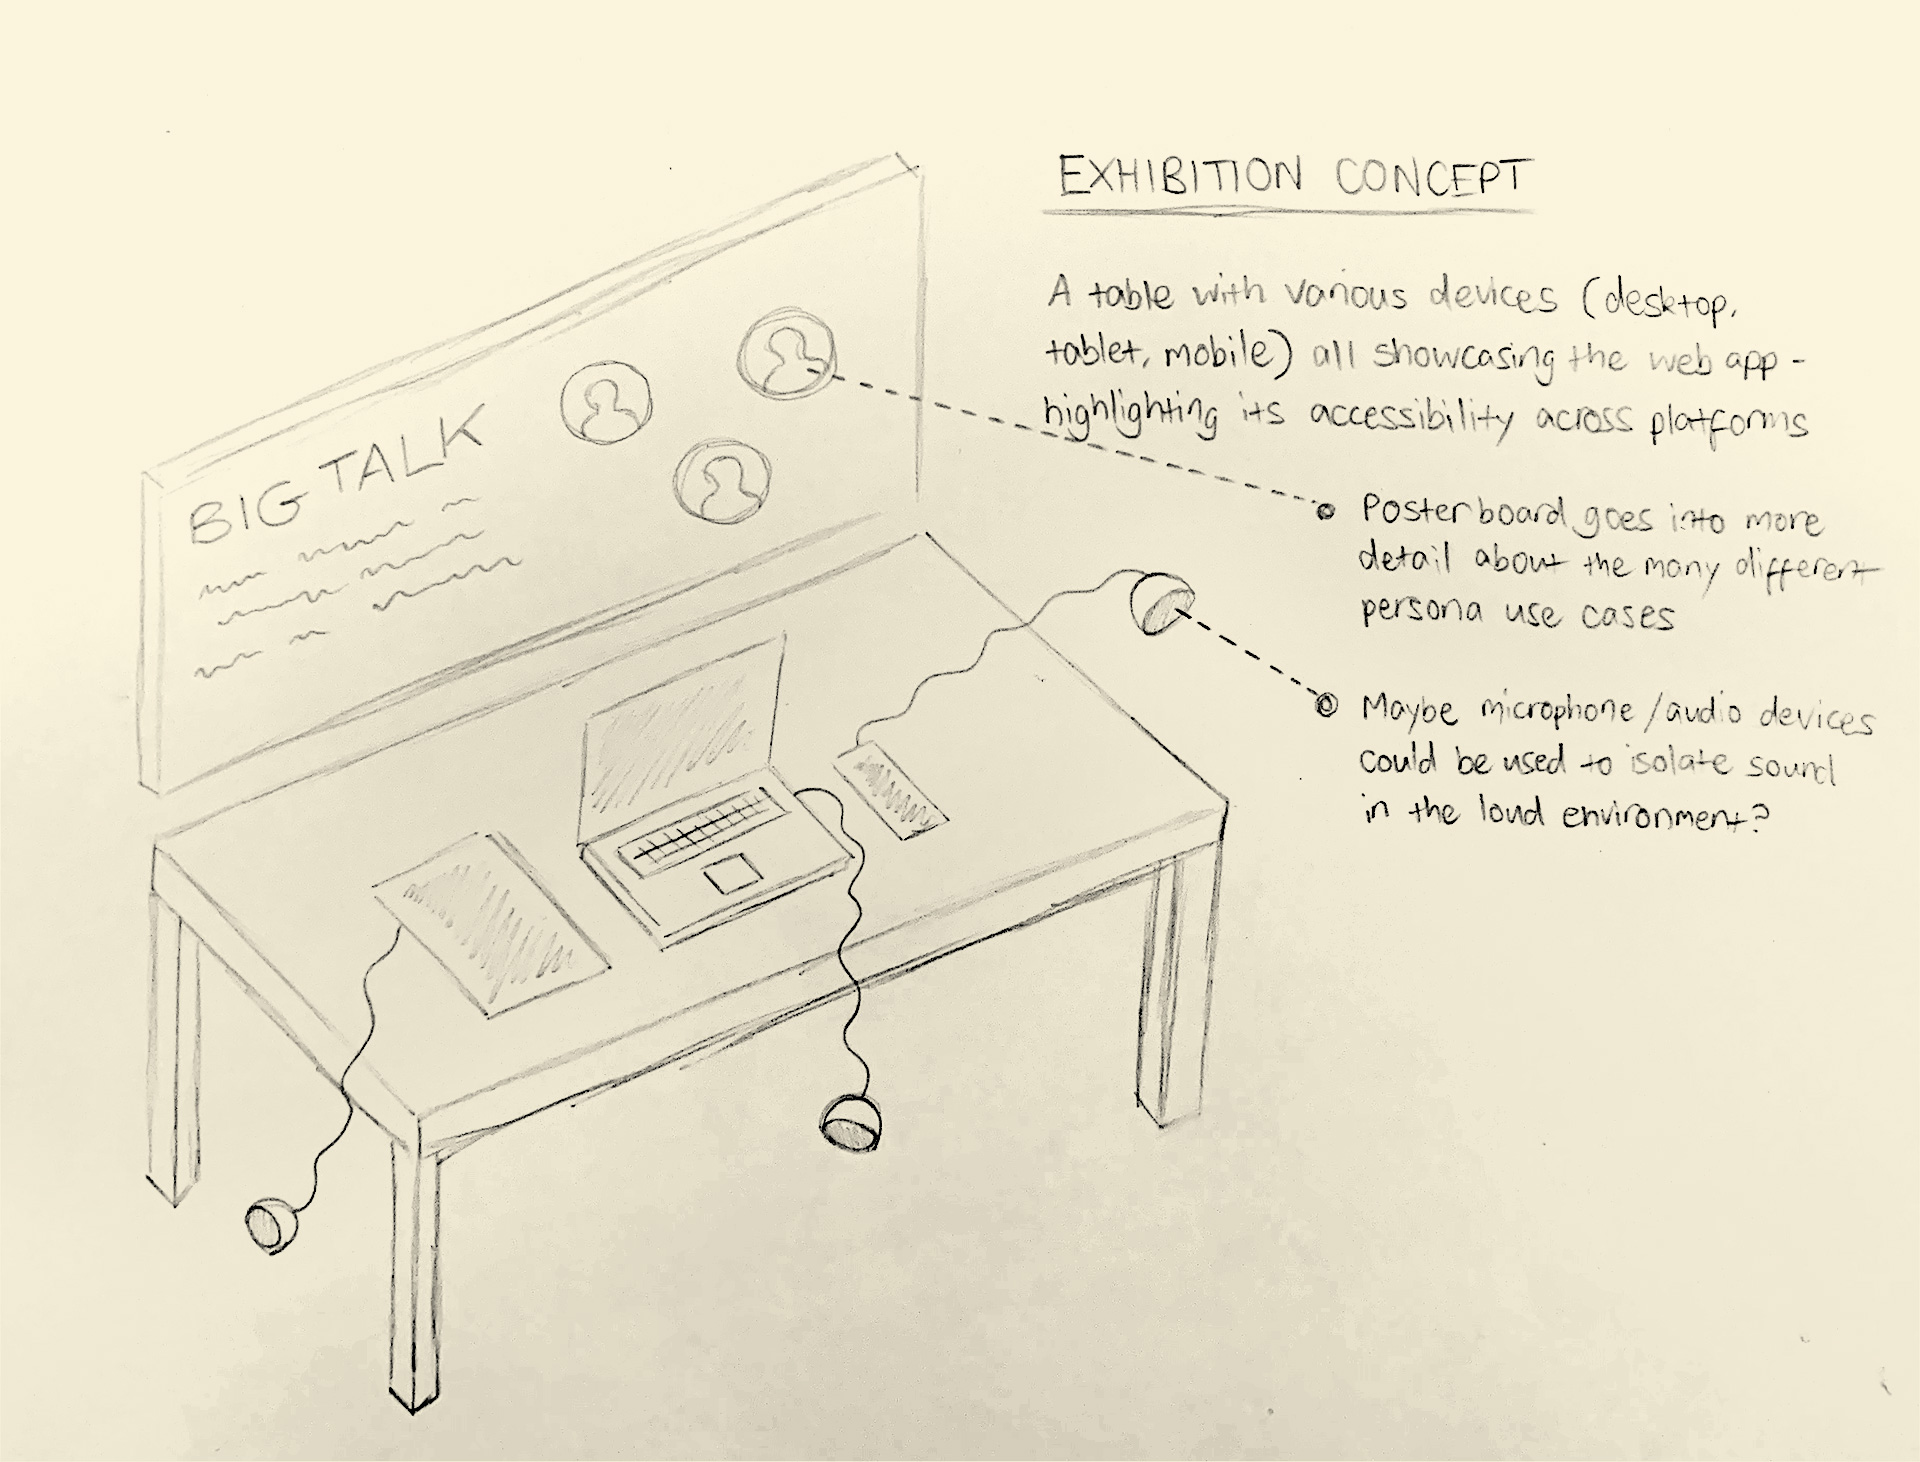 EXHIBITION CONCEPT
A table with various devices (desktop,
tablet, mobile) all showcasing the web app -
highlighting its accessibility across platforms
BIG TALK
Posterboard goes into more
detail about the many different
persona use cases
Maybe microphone/audio devices
could be used to isolate sound
in the loud environment?